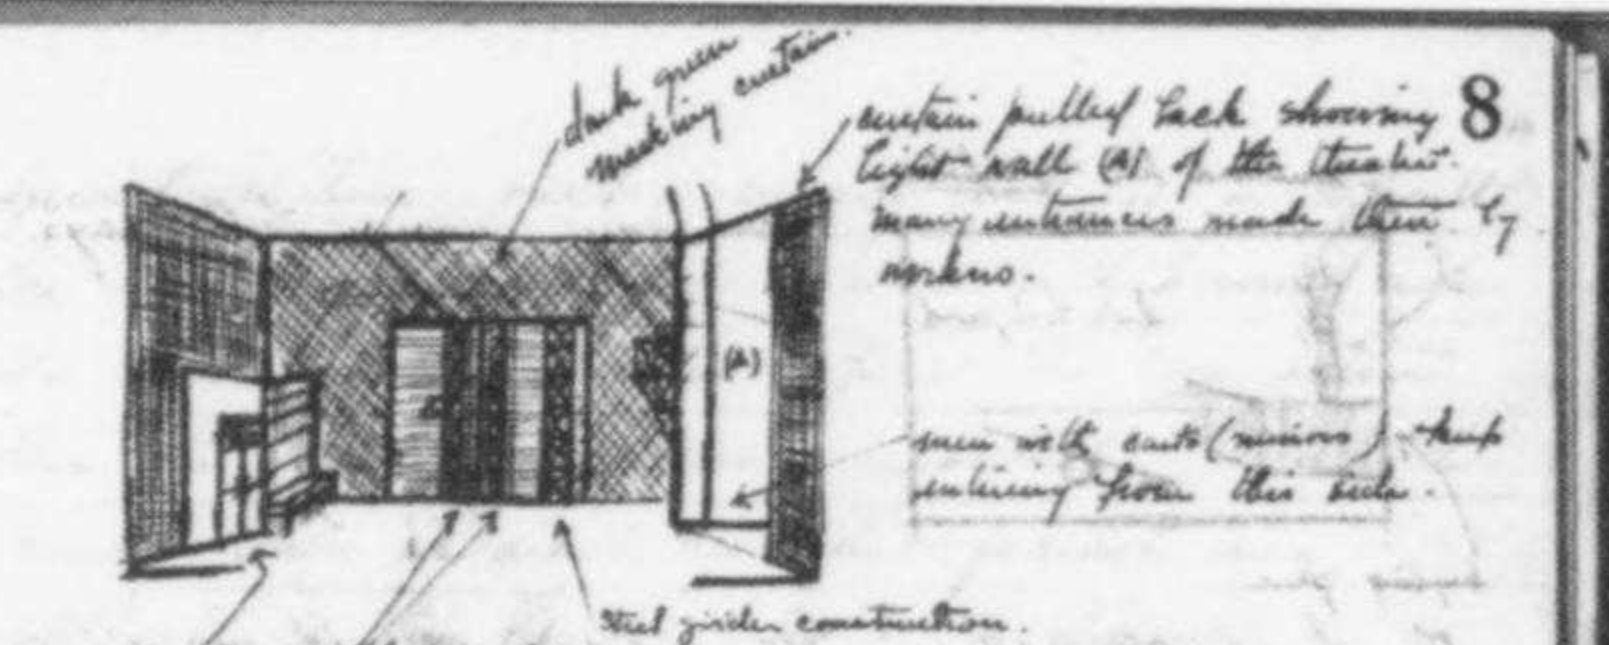 dark green
masking curtain.
8
curtain pulled back showing
light wall (A) of the theatre.
many entrances made there by
(A)
men with carts (miners) keep
entering from this side.
steel girder construction.